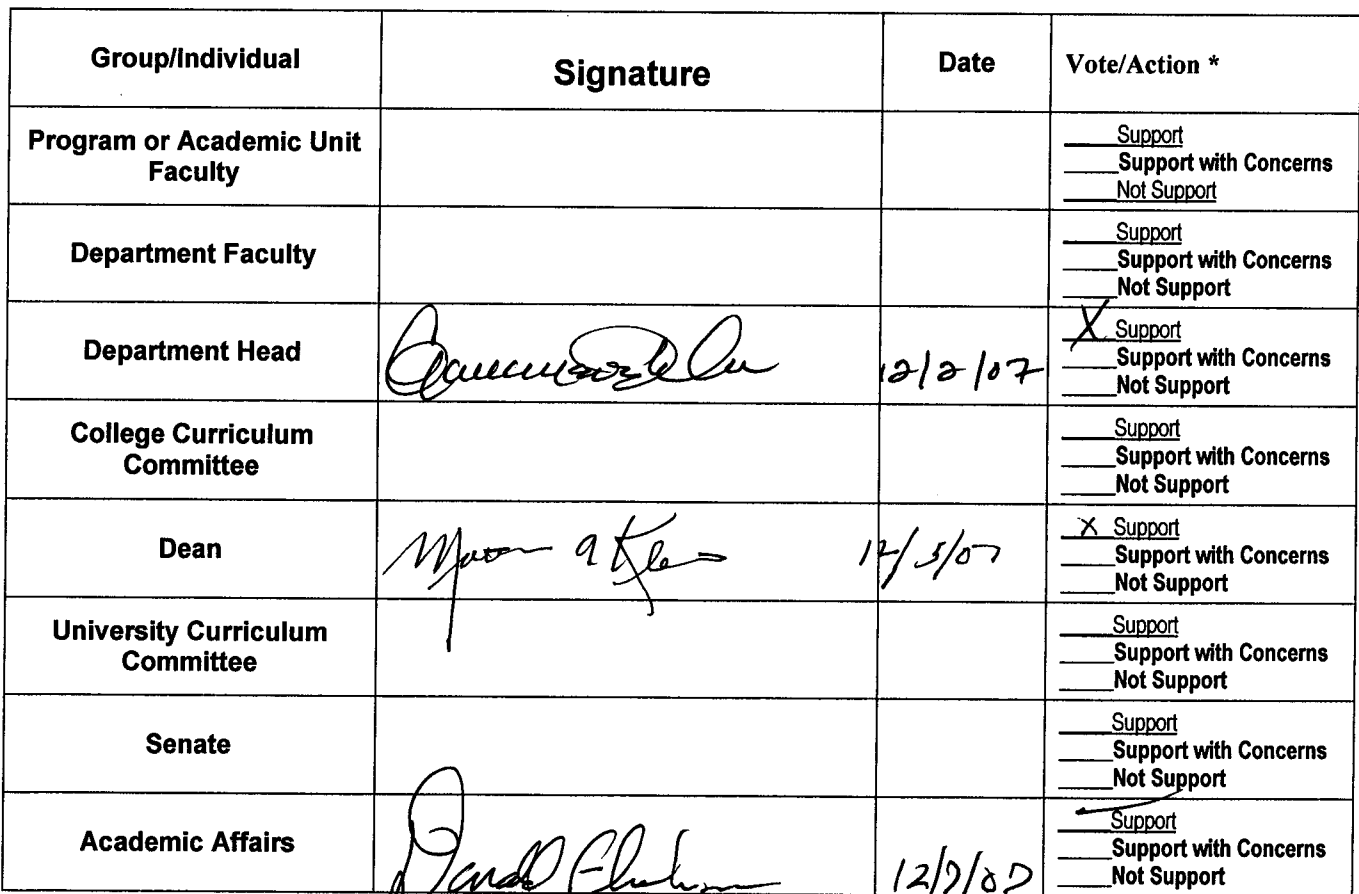 Group/Individual Signature Date Vote/Action *
Program or Academic Unit
Faculty
____Support
____Support with Concerns
____Not Support
Department Faculty
____Support
____Support with Concerns
____Not Support
Department Head 12/2/07
X Support
____Support with Concerns
____Not Support
College Curriculum
Committee
____Support
____Support with Concerns
____Not Support
Dean 12/5/07
X Support
____Support with Concerns
____Not Support
University Curriculum
Committee
____Support
____Support with Concerns
____Not Support
Senate
____Support
____Support with Concerns
____Not Support
Academic Affairs
____Support
____Support with Concerns
____Not Support